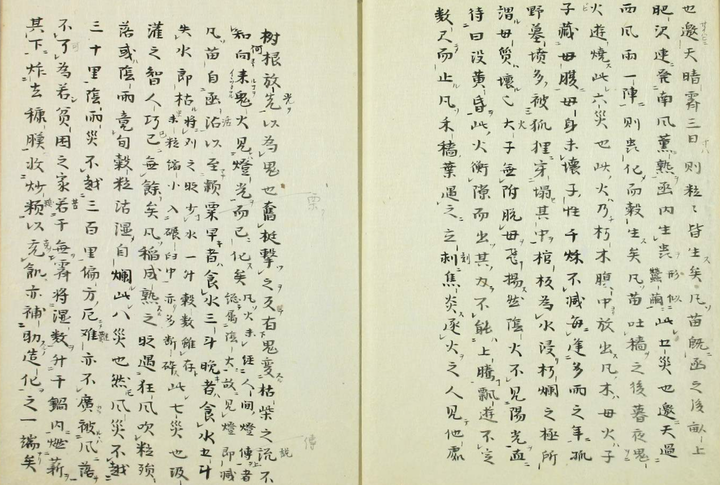 也邀天晴霽三日則粒〻皆生矣凡苗既函之後畝上
肥沃連発南風薫熱函内生蟲形似蠶繭此五災也邀天遇
西風雨一陣則蟲化而穀生矣凡苗吐穡之後暮夜鬼
火遊燒此六災也此火乃朽木腹中放出凡木母火子
子藏母腹母身未壞子性千秋不滅每逢多雨之年孤
野墓墳多被狐狸穿塌其中棺板為水浸朽爛之極所
謂母質壞也火子無附脱母飛揚然陰火不見陽光直
待日没黄昏此火衝隙而出其力不能上騰飄遊不定
數尺而止凡禾穡葉遇之立刻焦炎逐火之人見他處
樹根放先以為鬼也奮梃擊之反有鬼變枯柴之流不
知向来鬼火見燈光而已化矣凡火未經人間傳燈者總屬陰火故見燈即滅
凡苗自函活以至頴栗早者食水三斗晩者食水五斗
失水即枯将刈之時少水一升穀數雖存米粒縮小入碾臼中亦多断碎此七災也汲
灌之智人巧已無餘矣凡稲成熟之時遇狂風吹粒殞
落或陰雨竟旬穀粒沾濕自爛此八災也然風災不越
三十里陰雨災不越三百里偏方厄难亦不廣被風落
不可為若貧困之家若于無霽将濕数升于鍋内燃薪
其下炸去糠膜收炒糗以充飢亦補助造化之一端矣